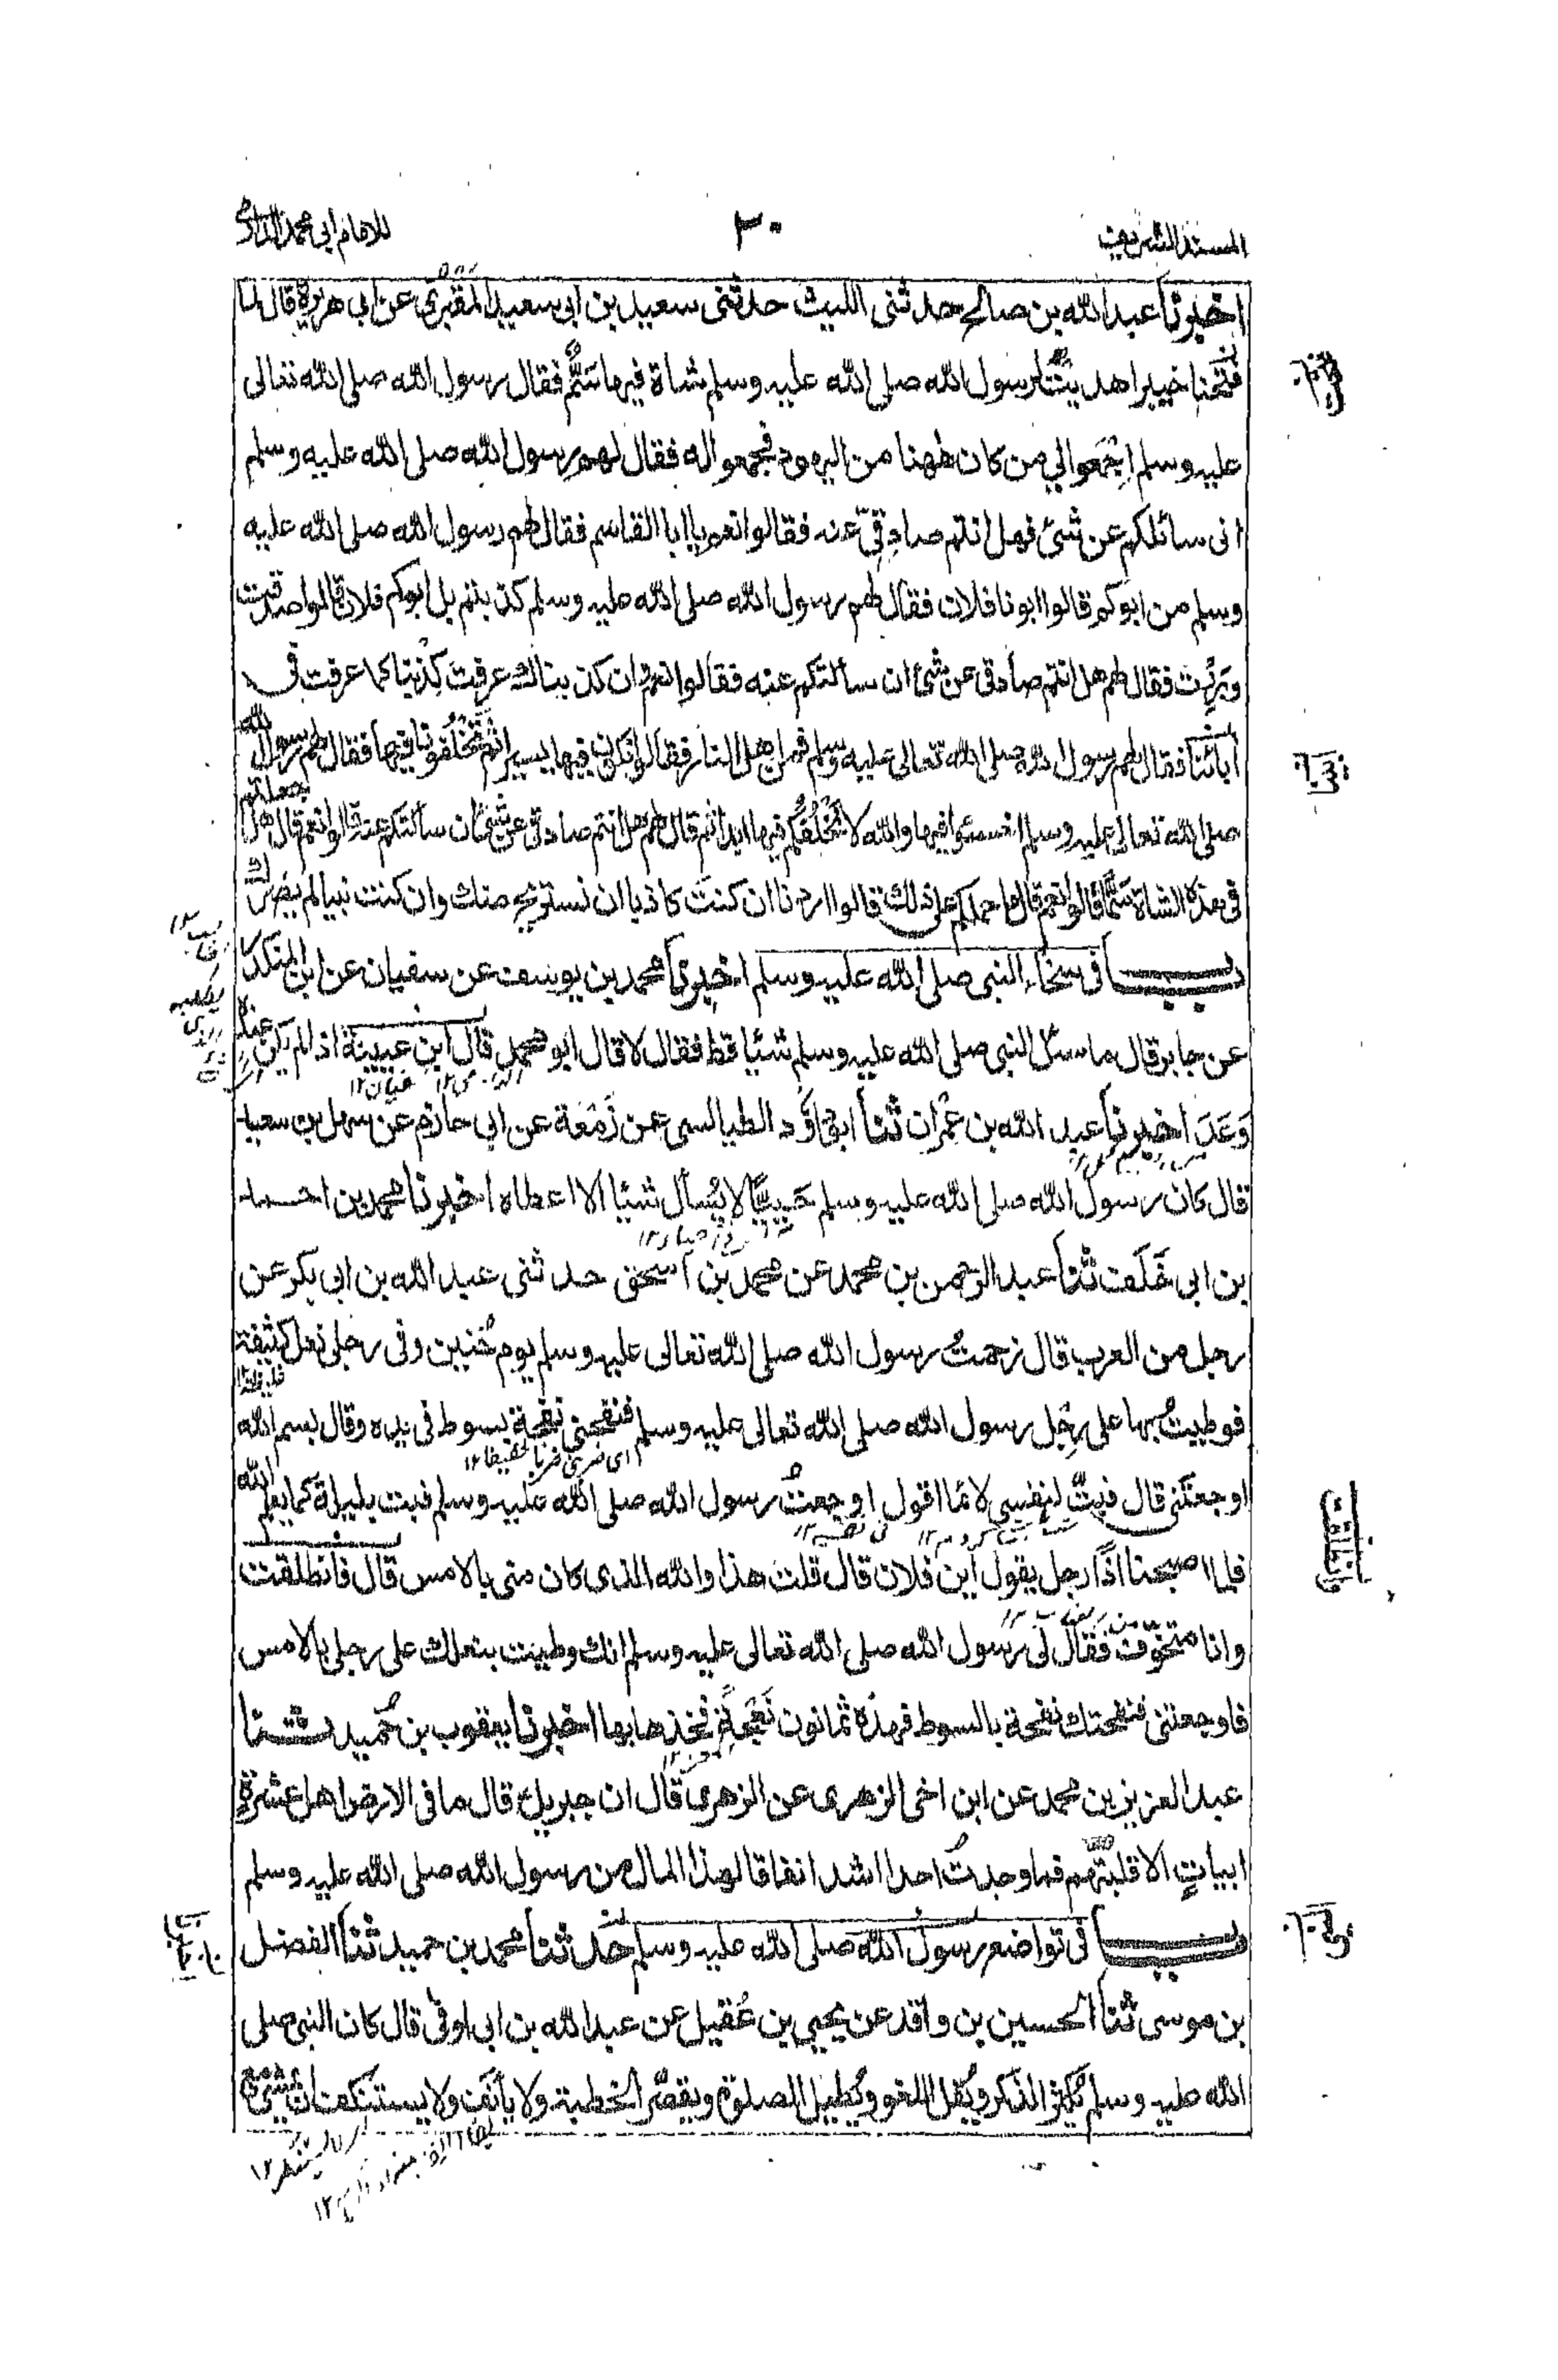 المسند الشريف
٣٠
للامام ابي محمد الدارمي
اخبرنا عبد الله بن صالح حدثنى الليث حدثنى سعيد بن ابى سعيد المقبُرِى عن ابي هريرة قال لما
فُتحنا خيبر اهديتْ لرسول الله صلى الله عليه وسلم شاة فيها سَمٌّ فقال رسول الله صلى الله تعالى
عليه وسلم اِجْمَعوا لي من كان ههنا من اليهود فجمعوا له فقال لهم رسول الله صلى الله عليه وسلم
انى سائلكم عن شئ فهل انتم صادِقِىّ عنه فقالوا نعم يا ابا القاسم فقال لهم رسول الله صلى الله عليه
وسلم من ابوكم قالوا ابونا فلان فقال لهم رسول الله صلى الله عليه وسلم كذبتم بل ابوكم فلان قالوا صدقت
وبَرِرْت فقال لهم هل انتم صادقى عن شئ ان سألتكم عنه فقالوا نعم وان كذبناك عرفتَ كِذْبَنا كما عرفت فى
أبائنا فقال لهم رسول الله صلى الله تعالى عليه وسلم فمن اهل النار فقالوا نكون فيها يسيرا ثم تخلُفونا فيها فقال لهم رسول الله
صلى الله تعالى عليه وسلم اخسئوا فيها والله لا نَخْلُفُكُم فيها ابدا ثم قال لهم هل انتم صادقى عن شئ ان سألتكم عنه قالوا نعم قال هل جعلتم
فى هذه الشاة سَمًّا قالوا نعم قال ما حملكم على ذلك قالوا اردنا ان كنتَ كاذبا ان نستريح منك وان كنت نبيا لم يضرك
باب فى سخاء النبى صلى الله عليه وسلم اخبرنا محمد بن يوسف عن سفيان عن ابن المنكدر
عن جابر قال ما سئل النبى صلى الله عليه وسلم شيًا قط فقال لا قال ابو محمد قال ابن عيينة اذا لم يكن عنده
سفيان ١٢
وَعَدَ اخبرنا عبد الله بن عِمْران ثنا ابو داؤد الطيالسى عن زَمْعَة عن ابي حازم عن سهل بن سعد
قال كان رسول الله صلى الله عليه وسلم حَيِيًّا لا يُسأل شيًا الا اعطاه اخبرنا محمد بن احمد
بن ابى خَلَف ثنا عبد الرحمن بن محمد عن محمد بن اسحق حدثنى عبد الله بن ابى بكر عن
رجل من العرب قال زحمتُ رسول الله صلى الله تعالى عليه وسلم يوم حُنين وفى رجلى نعل كثيفة
فوطيتُ بها على رِجْل رسول الله صلى الله تعالى عليه وسلم فنفحنى نفحة بسوط فى يده وقال بسم الله
اى ضربنى ضربا خفيفا ١٢
اوجعتَنى قال فبِتُّ لنفسى لائما اقول اوجعتُ رسول الله صلى الله عليه وسلم فبت بليلة كما يعلم الله
فلما اصبحنا اذًا رجل يقول اين فلان قال قلت هذا والله الذى كان منى بالامس قال فانطلقت
وانا متخوّف فقال لى رسول الله صلى الله تعالى عليه وسلم انك وطيت بنعلك على رجلى بالامس
فاوجعتنى فنفحتك نفحة بالسوط فهذه ثمانون نَعْجَةً فخذها بها اخبرنا يعقوب بن حُميد ثنا
عبد العزيز بن محمد عن ابن اخى الزهرى عن الزهرى قال ان جبريل قال ما فى الارض اهل عشرة
ابياتٍ الا قلبتهم فما وجدتُ احدا اشد انفاقا لهذا المال من رسول الله صلى الله عليه وسلم
باب فى تواضع رسول الله صلى الله عليه وسلم حدثنا محمد بن حميد ثنا الفضل
بن موسى ثنا الحسين بن واقد عن يحيى بن عُقيل عن عبد الله بن ابى اوفى قال كان النبى صلى
الله عليه وسلم يُكثر الذكر ويُقل اللغو ويُطيل الصلوة ويقصّر الخطبة ولا يأنَف ولا يستنكف ان يمشى مع